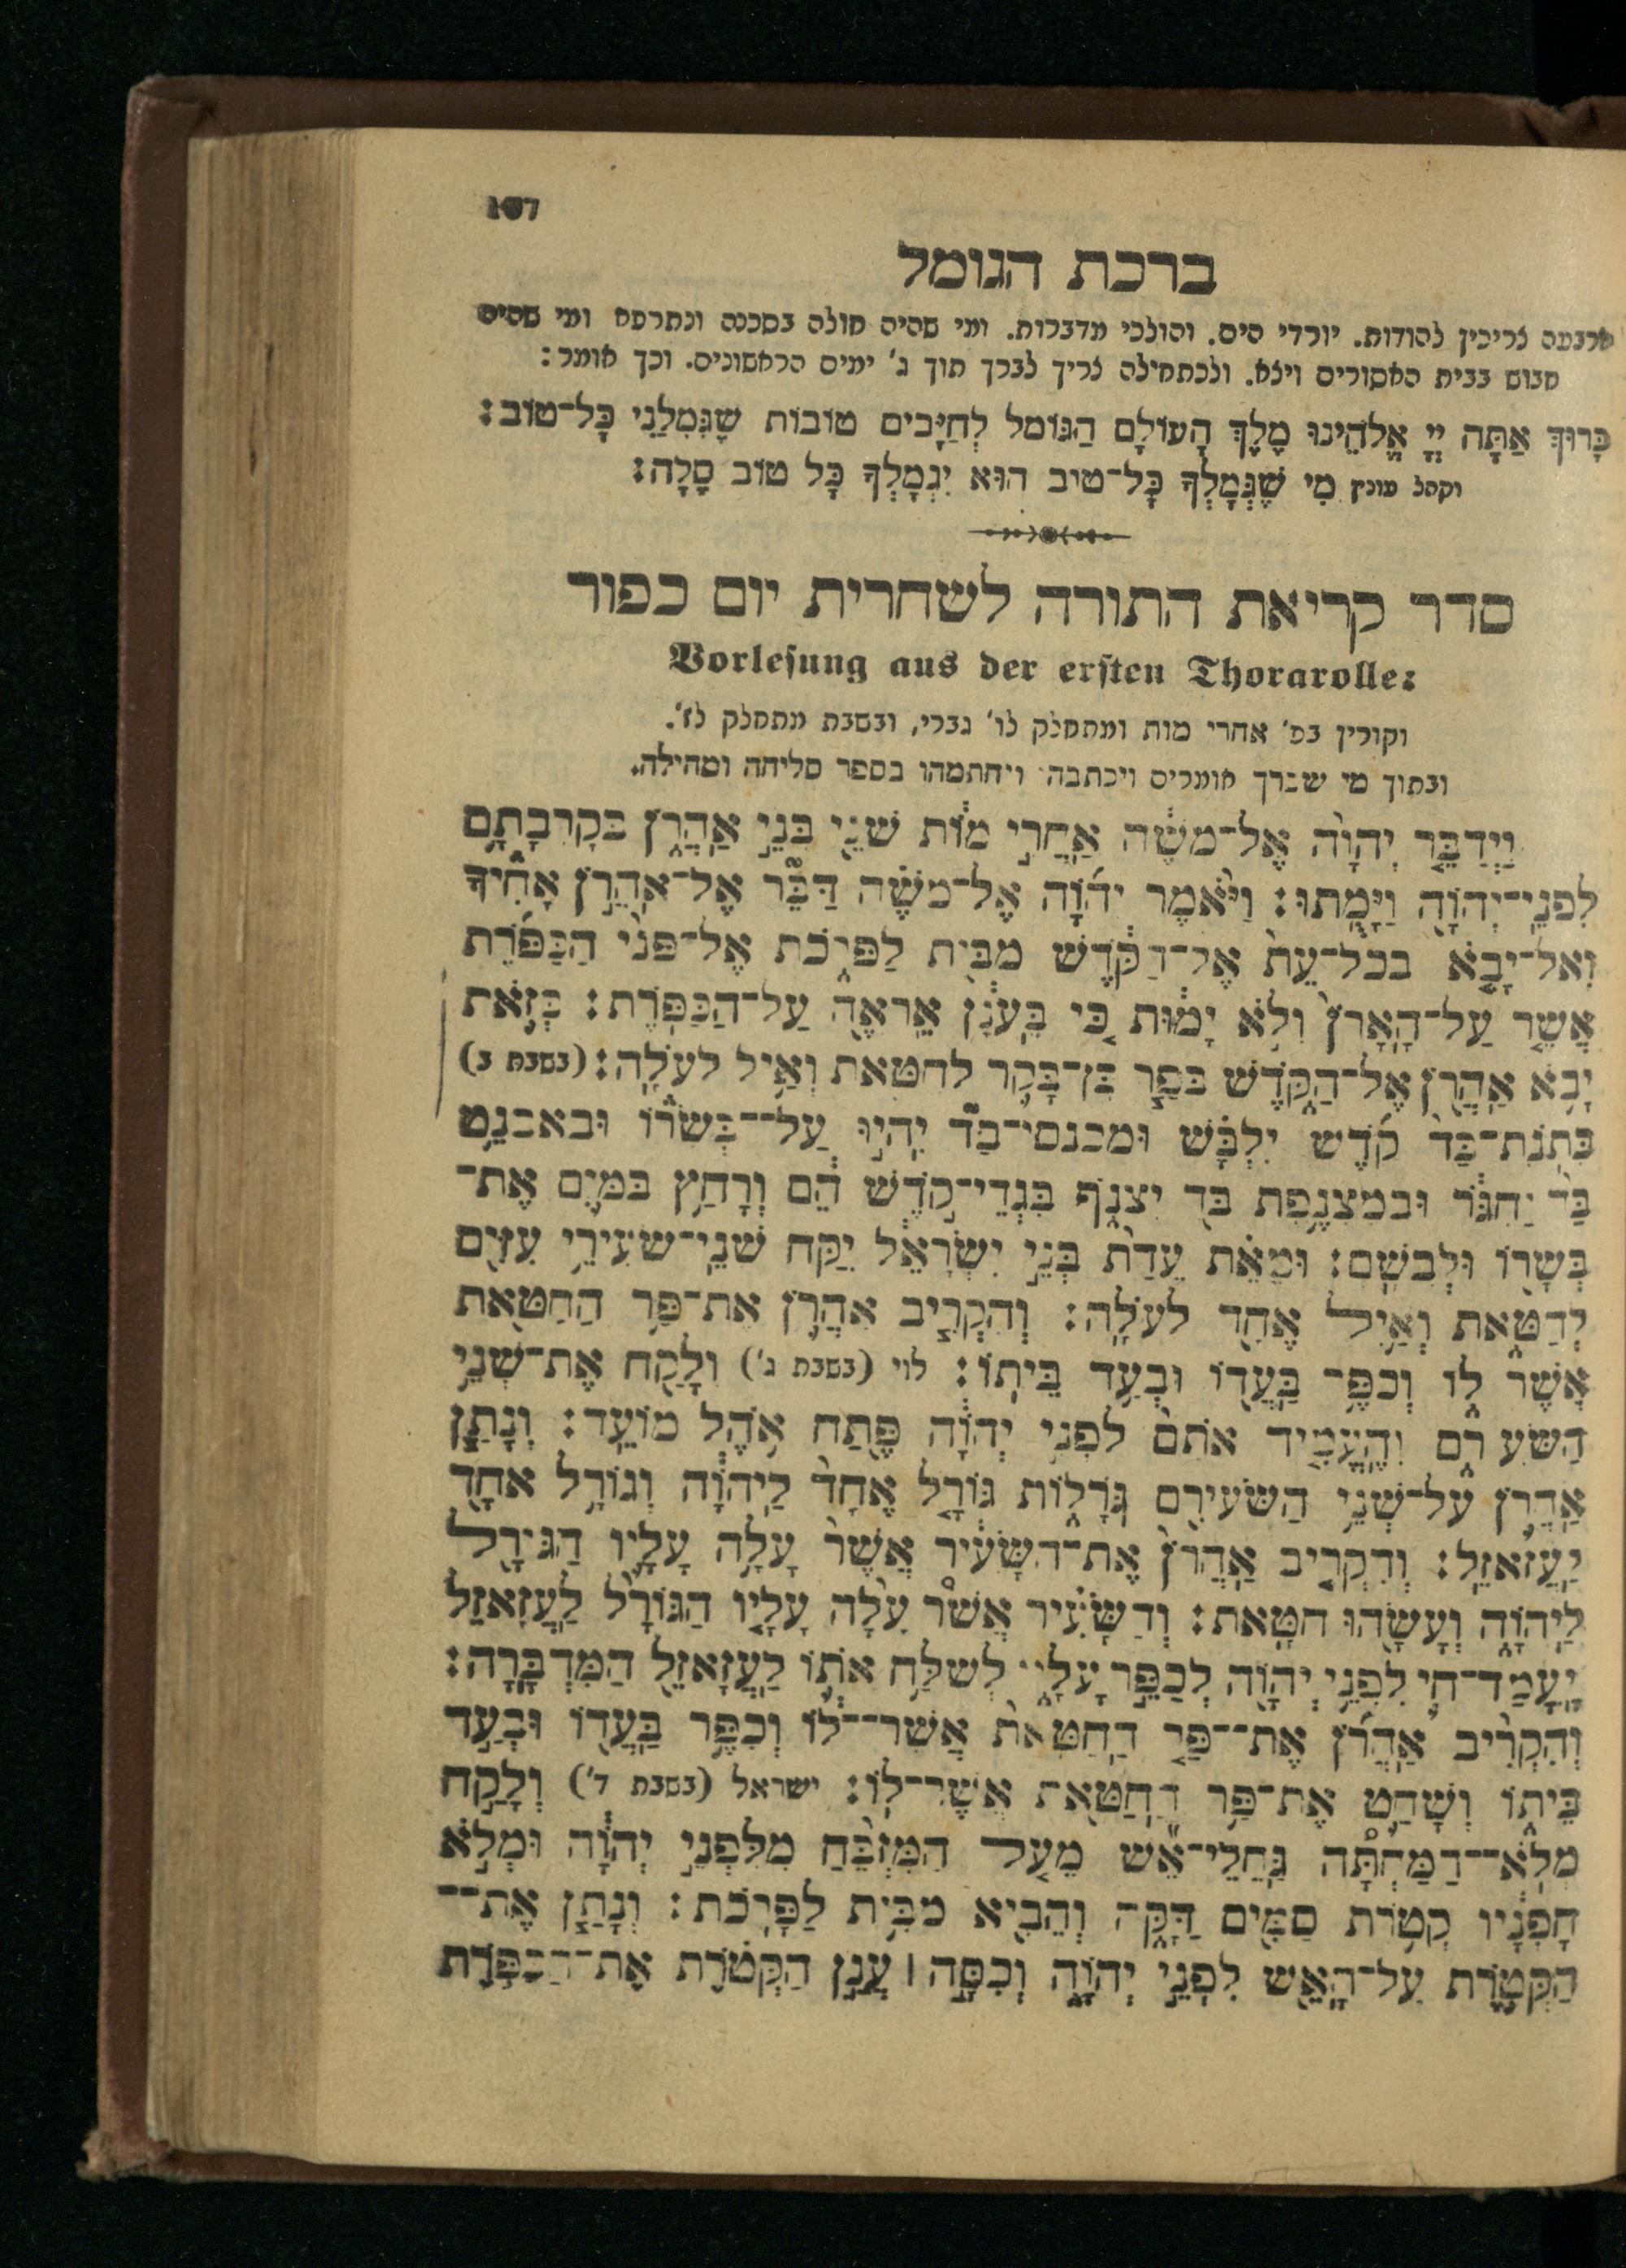 107
ברכת הגומל
ארבעה צריכין להודות. יורדי הים. והולכי מדברות. ומי שהיה חולה בסכנה ונתרפא ומי שהיה
חבוש בבית האסורים ויצא. ולכתחילה צריך לברך תוך ג׳ ימים הראשונים. וכך אומר:
בָּרוּךְ אַתָּה יְיָ אֱלֹהֵינוּ מֶלֶךְ הָעוֹלָם הַגּוֹמֵל לְחַיָּבִים טוֹבוֹת שֶׁגְּמָלַנִי כָּל־טוֹב:
וקהל עונין מִי שֶׁגְּמָלְךָ כָּל־טוֹב הוּא יִגְמָלְךָ כָּל טוֹב סֶלָה:
סדר קריאת התורה לשחרית יום כפור
Vorlesung aus der ersten Thorarolle:
וקורין בפ׳ אחרי מות ומתחלק לו׳ גברי, ובשבת מתחלק לז׳.
ובתוך מי שברך אומרים ויכתבהו ויחתמהו בספר סליחה ומחילה.
וַיְדַבֵּר יְהוָה אֶל־מֹשֶׁה אַחֲרֵי מוֹת שְׁנֵי בְּנֵי אַהֲרֹן בְּקָרְבָתָם
לִפְנֵי־יְהוָה וַיָּמֻתוּ: וַיֹּאמֶר יְהוָה אֶל־מֹשֶׁה דַּבֵּר אֶל־אַהֲרֹן אָחִיךָ
וְאַל־יָבֹא בְכָל־עֵת אֶל־הַקֹּדֶשׁ מִבֵּית לַפָּרֹכֶת אֶל־פְּנֵי הַכַּפֹּרֶת
אֲשֶׁר עַל־הָאָרֹן וְלֹא יָמוּת כִּי בֶּעָנָן אֵרָאֶה עַל־הַכַּפֹּרֶת: בְּזֹאת
יָבֹא אַהֲרֹן אֶל־הַקֹּדֶשׁ בְּפַר בֶּן־בָּקָר לְחַטָּאת וְאַיִל לְעֹלָה: (בשבת ב)
כְּתֹנֶת־בַּד קֹדֶשׁ יִלְבָּשׁ וּמִכְנְסֵי־בַד יִהְיוּ עַל־בְּשָׂרוֹ וּבְאַבְנֵט
בַּד יַחְגֹּר וּבְמִצְנֶפֶת בַּד יִצְנֹף בִּגְדֵי־קֹדֶשׁ הֵם וְרָחַץ בַּמַּיִם אֶת־
בְּשָׂרוֹ וּלְבֵשָׁם: וּמֵאֵת עֲדַת בְּנֵי יִשְׂרָאֵל יִקַּח שְׁנֵי־שְׂעִירֵי עִזִּים
לְחַטָּאת וְאַיִל אֶחָד לְעֹלָה: וְהִקְרִיב אַהֲרֹן אֶת־פַּר הַחַטָּאת
אֲשֶׁר לוֹ וְכִפֶּר בַּעֲדוֹ וּבְעַד בֵּיתוֹ: לוי (בשבת ג׳) וְלָקַח אֶת־שְׁנֵי
הַשְּׂעִירִם וְהֶעֱמִיד אֹתָם לִפְנֵי יְהוָה פֶּתַח אֹהֶל מוֹעֵד: וְנָתַן
אַהֲרֹן עַל־שְׁנֵי הַשְּׂעִירִם גֹּרָלוֹת גּוֹרָל אֶחָד לַיהוָה וְגוֹרָל אֶחָד
לַעֲזָאזֵל: וְהִקְרִיב אַהֲרֹן אֶת־הַשָּׂעִיר אֲשֶׁר עָלָה עָלָיו הַגּוֹרָל
לַיהוָה וְעָשָׂהוּ חַטָּאת: וְהַשָּׂעִיר אֲשֶׁר עָלָה עָלָיו הַגּוֹרָל לַעֲזָאזֵל
יָעֳמַד־חַי לִפְנֵי יְהוָה לְכַפֵּר עָלָיו לְשַׁלַּח אֹתוֹ לַעֲזָאזֵל הַמִּדְבָּרָה:
וְהִקְרִיב אַהֲרֹן אֶת־פַּר הַחַטָּאת אֲשֶׁר־לוֹ וְכִפֶּר בַּעֲדוֹ וּבְעַד
בֵּיתוֹ וְשָׁחַט אֶת־פַּר הַחַטָּאת אֲשֶׁר־לוֹ: ישראל (בשבת ד׳) וְלָקַח
מְלֹא־הַמַּחְתָּה גַּחֲלֵי־אֵשׁ מֵעַל הַמִּזְבֵּחַ מִלִּפְנֵי יְהוָה וּמְלֹא
חָפְנָיו קְטֹרֶת סַמִּים דַּקָּה וְהֵבִיא מִבֵּית לַפָּרֹכֶת: וְנָתַן אֶת־
הַקְּטֹרֶת עַל־הָאֵשׁ לִפְנֵי יְהוָה וְכִסָּה ׀ עֲנַן הַקְּטֹרֶת אֶת־הַכַּפֹּרֶת